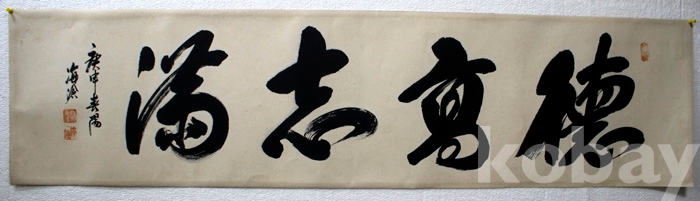 德高志滿
庚申春陽
kobay